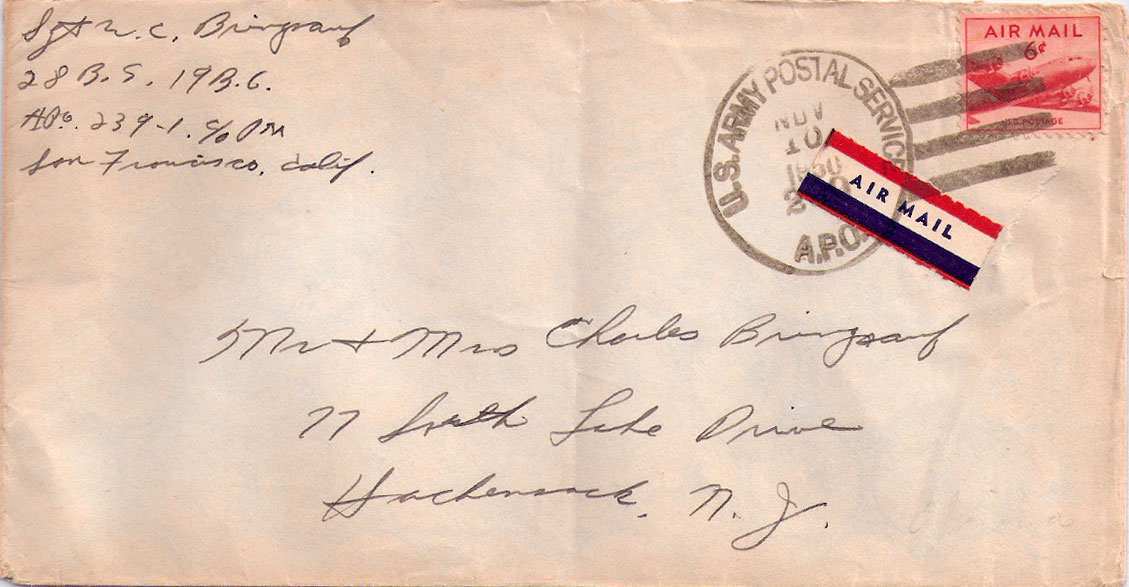 Sgt W. C. Bringrauf
28 B.S. 19 B.G.
APO. 239-1. c/o PM
San Francisco, Calif.
AIR MAIL
6¢
U.S. POSTAGE
U.S. ARMY POSTAL SERVICE
NOV
10
1950
A.P.O.
AIR MAIL
Mr & Mrs Charles Bringrauf
77 South Lake Drive
Hackensack, N. J.